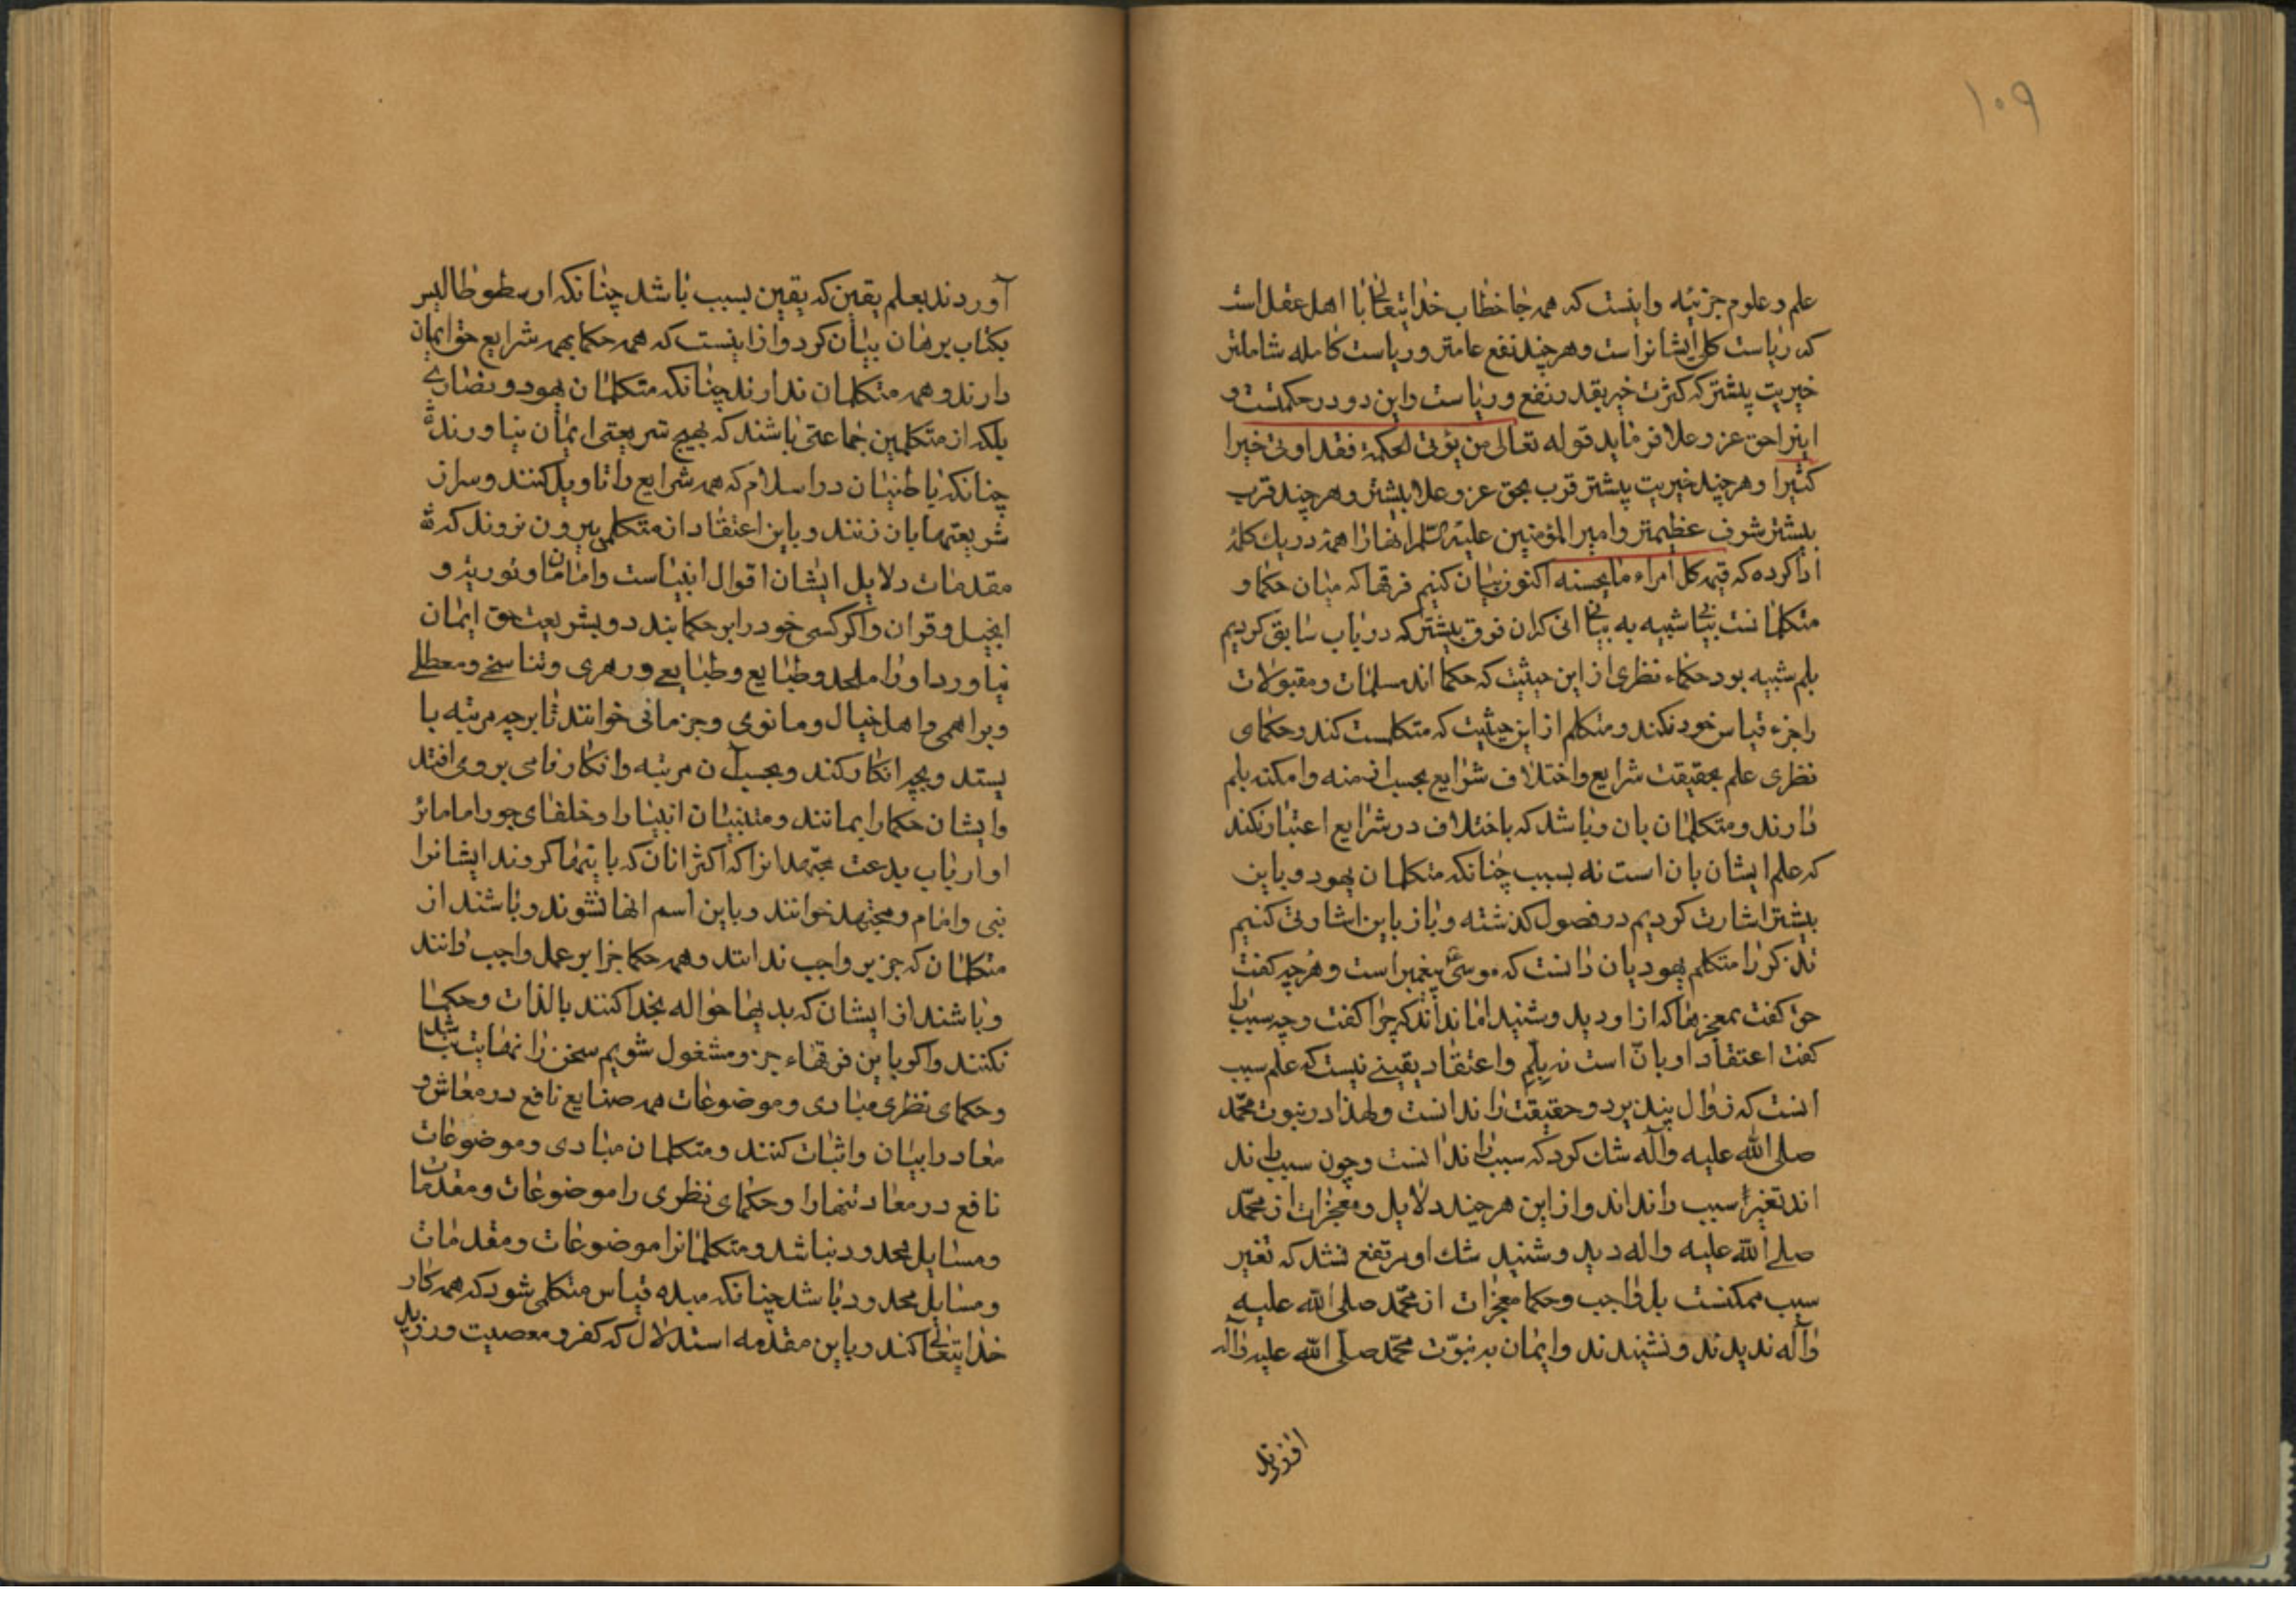 ۱۰۹
علم و علوم جزئیه و اینست که همه جا خطاب خدایتعالی با اهل عقل است
که ریاست کلی ایشانراست و هر چند نفع عامتر و ریاست کامله شاملتر
خیریت پیشتر که کثرت خیر بقدر نفع و ریاست و این دو در حکمتست و
اینرا حق عز و علا فرماید قوله تعالی من یؤتی الحکمة فقد اوتی خیرا
کثیرا و هر چند خیریت پیشتر قرب بحق عز و علا بیشتر و هر چند قرب
بیشتر شرف عظیمتر و امیر المؤمنین علیه السلم اینهارا همه در یک کلمه
ادا کرده که قیمة کل امراء ما یحسنه اکنون بیان کنیم فرقها که میان حکما و
متکلمانست بیانی شبیه به بیان انی کران فرق بیشتر که در باب سابق کردیم
بلم شبیه بود حکماء نظری از این حیثیت که حکما اند مسلمات و مقبولات
را جزء قیاس خود نکند و متکلم از این حیثیت که متکلمست کند و حکمای
نظری علم بحقیقت شرایع و اختلاف شرایع بحسب ازمنه و امکنه بلم
دارند و متکلمان بان و باشد که باختلاف در شرایع اعتبار نکند
که علم ایشان بان است نه بسبب چنانکه متکلمان یهود و باین
بیشتر اشارت کردیم در فصول کذشته و باز باین اشارتی کنیم
تذکر را متکلم یهود بان دانست که موسی ع پیغمبر است و هر چه کفت
حق کفت بمعجزها که از او دید و شنید اما نداند که چرا کفت و چه سبب را
کفت اعتقاد او بان است نه بلم و اعتقاد یقینی نیست که علم سبب
انست که زوال نپذیرد و حقیقت را ندانست و لهذا در نبوت محمد
صلی الله علیه و آله شک کرد که سبب را ندانست و چون سبب را ند
اند تغیر سبب را نداند و از این هر چند دلایل و معجزات از محمد
صلی الله علیه و اله دید و شنید شک او مرتفع نشد که تغیر
سبب ممکنست بل واجب و حکما معجزات از محمد صلی الله علیه
و آله ندیدند و نشنیدند و ایمان به نبوت محمد صلی الله علیه و آله
آوردند بعلم یقین که یقین بسبب باشد چنانکه ارسطوطالیس
بکتاب برهان بیان کرد و از اینست که همه حکما بهمه شرایع حق ایمان
دارند و همه متکلمان ندارند چنانکه متکلمان یهود و نصاری
بلکه از متکلمین جماعتی باشند که بهیچ شریعتی ایمان نیاورند
چنانکه باطنیان در اسلام که همه شرایع را تاویل کنند و سراز
شریعتها بان زنند و باین اعتقاد از متکلمی بیرون نروند که
مقدمات دلایل ایشان اقوال انبیاست و امامان و توریة و
انجیل و قران و اکر کسی خود را بر حکما بندد و بشریعت حق ایمان
نیاورد او را ملحد و طبایع و طبایعی و دهری و تناسخی و معطلی
و براهمی و اهل خیال و مانوی و جزمانی خوانند تا بر چه مرتبه با
یستد و بچه انکار کند و بحسب آن مرتبه و انکار نامی بر وی افتد
و ایشان حکما را بمانند و متنبیان انبیا را و خلفای جور امامانرا
و ارباب بدعت مجتهدانرا که اکثر انان که باینها کروند ایشانرا
نبی و امام و مجتهد خوانند و باین اسم انها نشوند و باشند از
متکلمان که جز بر واجب ندانند و همه حکما جزا بر عمل واجب دانند
و باشند از ایشان که بدیها حواله بخدا کنند بالذات و حکما
نکنند و اکر باین فرقهاء جزو مشغول شویم سخن را نهایت نباشد
و حکمای نظری مبادی و موضوعات همه صنایع نافع در معاش و
معاد را بیان و اثبات کنند و متکلمان مبادی و موضوعات
نافع در معاد تنها را و حکمای نظری را موضوعات و مقدمات
و مسایل محدود نباشد و متکلمانرا موضوعات و مقدمات
و مسایل محدود باشد چنانکه مبدء قیاس متکلمی شود که همه کار
خدایتعالی کند و باین مقدمه استدلال که کفر و معصیت و رزیل